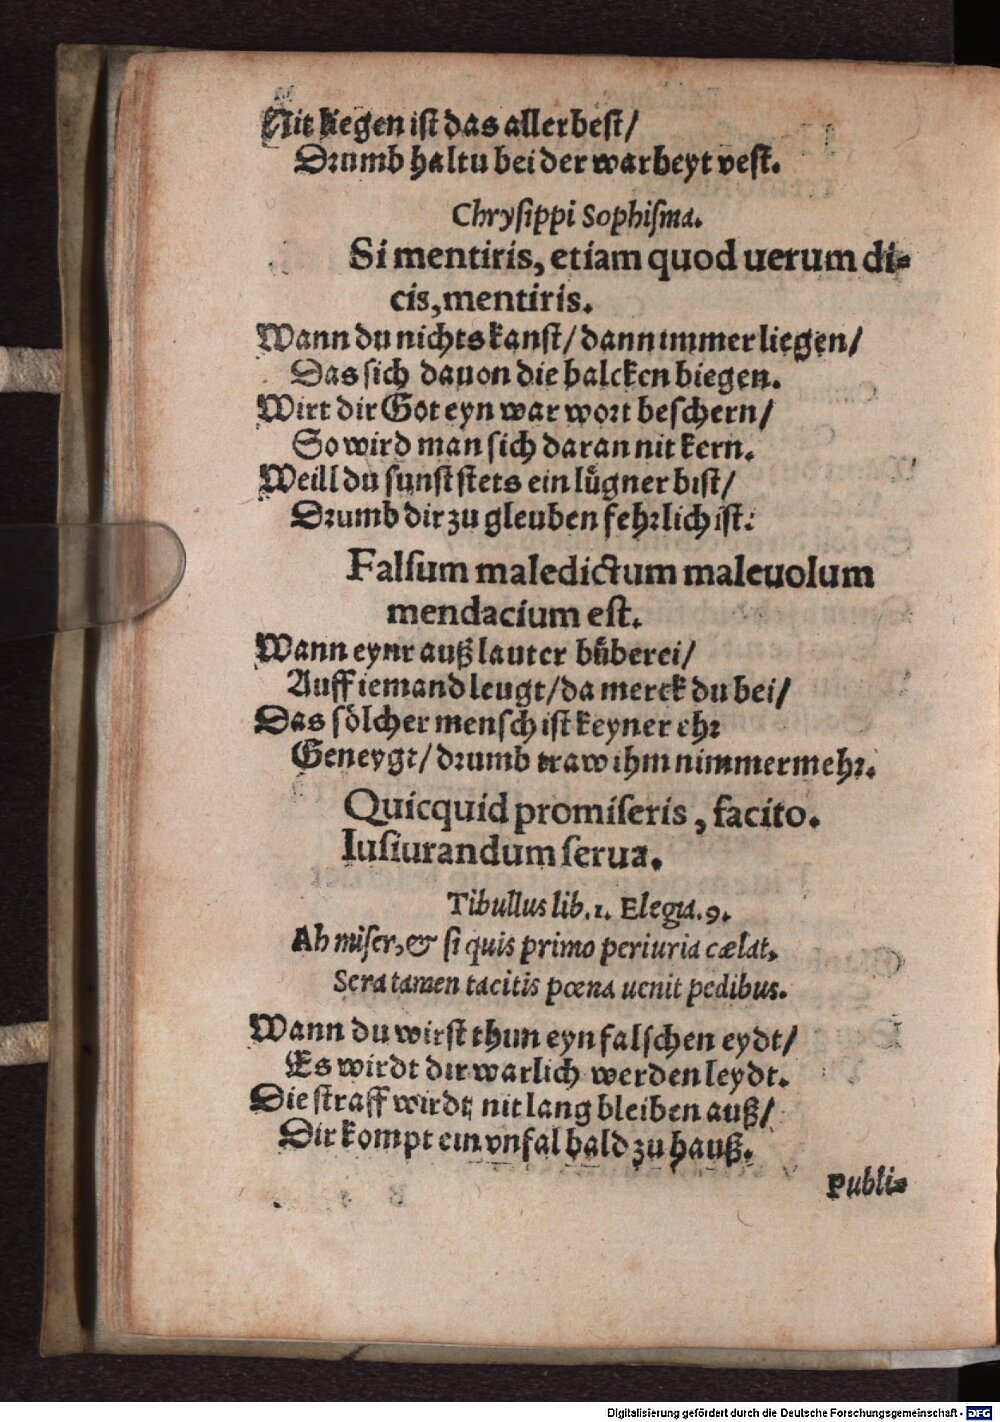 Nit liegen ist das aller best/
Drumb haltu bei der warheyt vest.
Chrysippi Sophiſma.
Si mentiris, etiam quod uerum di-
cis, mentiris.
Wann du nichts kanſt/ dann immer liegen/
Das ſich dauon die balcken biegen.
Wirt dir Got eyn war wort beſchern/
So wird man ſich daran nit kern.
Weill du ſunſt ſtets ein lügner biſt/
Drumb dir zu gleuben fehrlich iſt.
Falſum maledictum maleuolum
mendacium eſt.
Wann eynr auß lauter büberei/
Auff iemand leugt/ da merck du bei/
Das ſölcher menſch iſt keyner ehr
Geneygt/ drumb traw ihm nimmermehr.
Quicquid promiſeris, facito.
Iuſiurandum ſerua.
Tibullus lib. 1. Elegia. 9.
Ah miſer, & ſi quis primo periuria cælat,
Sera tamen tacitis pœna uenit pedibus.
Wann du wirſt thun eyn falſchen eydt/
Es wirdt dir warlich werden leydt.
Die ſtraff wirdt nit lang bleiben auß/
Dir kompt ein vnfal bald zu hauß.
Publi-
Digitalisierung gefördert durch die Deutsche Forschungsgemeinschaft - DFG